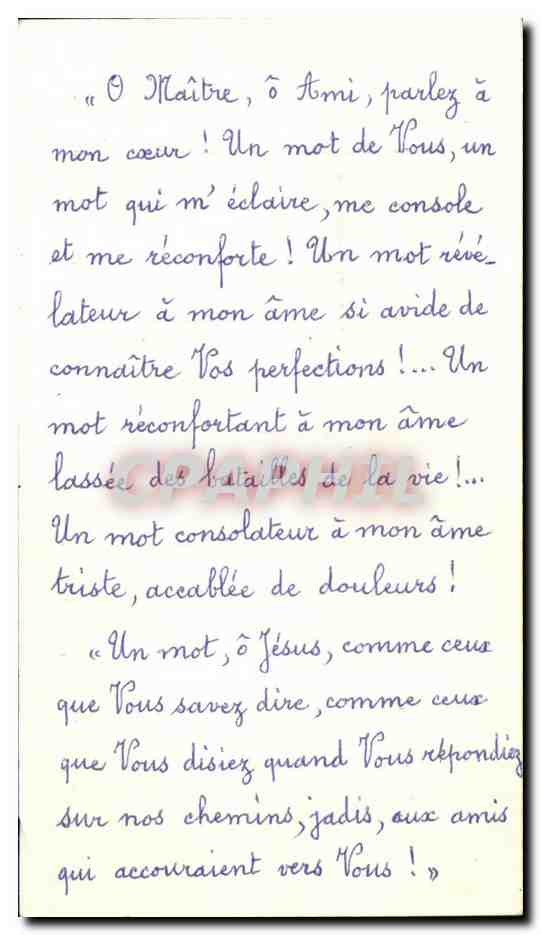 « O Maître, ô Ami, parlez à
mon cœur ! Un mot de Vous, un
mot qui m' éclaire, me console
et me réconforte ! Un mot révé-
lateur à mon âme si avide de
connaître Vos perfections !... Un
mot réconfortant à mon âme
lassée des batailles de la vie !...
CPAPHIL
Un mot consolateur à mon âme
triste, accablée de douleurs !
« Un mot, ô Jésus, comme ceux
que Vous savez dire, comme ceux
que Vous disiez quand Vous répondiez
sur nos chemins, jadis, aux amis
qui accouraient vers Vous ! »